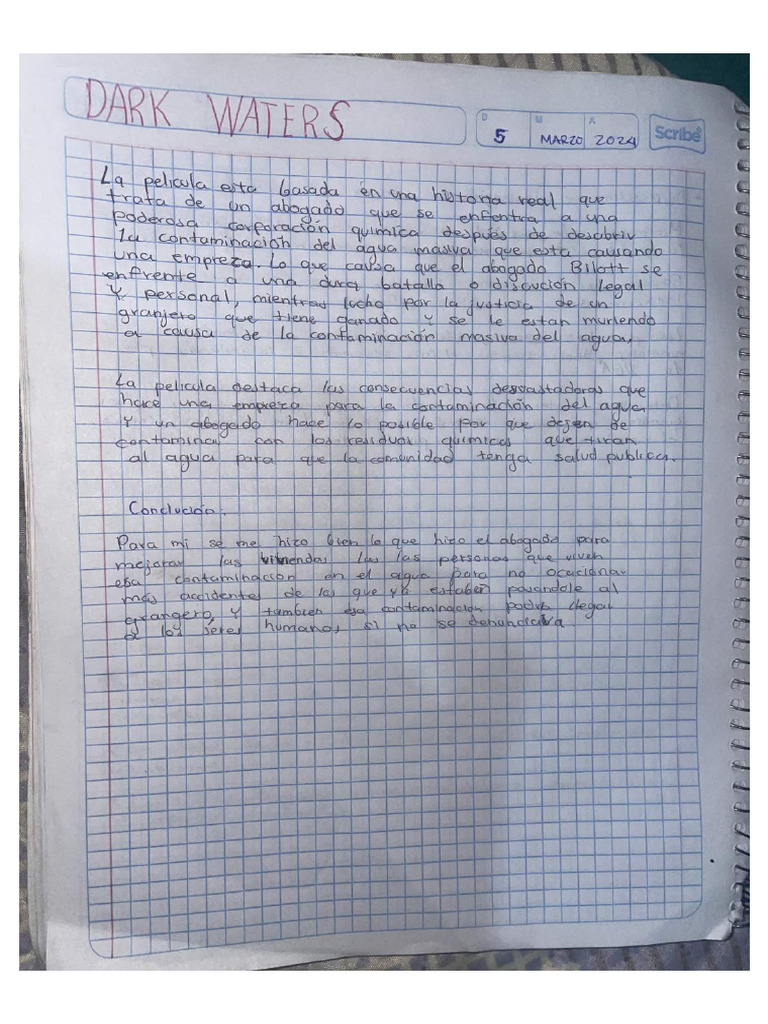 DARK WATERS
D M A
5 MARZO 2024
Scribe
La pelicula esta basada en una historia real que
trata de un abogado que se enfentra a una
poderosa corporación quimica después de descubrir
La contaminación del agua masiva que esta causando
una empreza. Lo que causa que el abogado Bilott se
enfrente a una dura batalla o discución legal
Y personal, mientras lucha por la justicia de un
granjero que tiene ganado y se le estan muriendo
a causa de la contaminación masiva del agua,
La pelicula destaca las consecuencias desvastadoras que
hace una empreza para la contaminación del agua
Y un abogado hace lo posible por que dejen de
contaminar con los residuos quimicos que tiran
al agua para que la comunidad tenga salud publica.
Conclución.
Para mi se me hizo bien lo que hizo el abogado para
mejorar las viviendas las personas que viven
esa contaminación en el agua para no ocacionar
más accidentes de los que ya estaban pasandole al
grangero, y tambien esa contaminación podria llegar
a los seres humanos si no se denunciaba